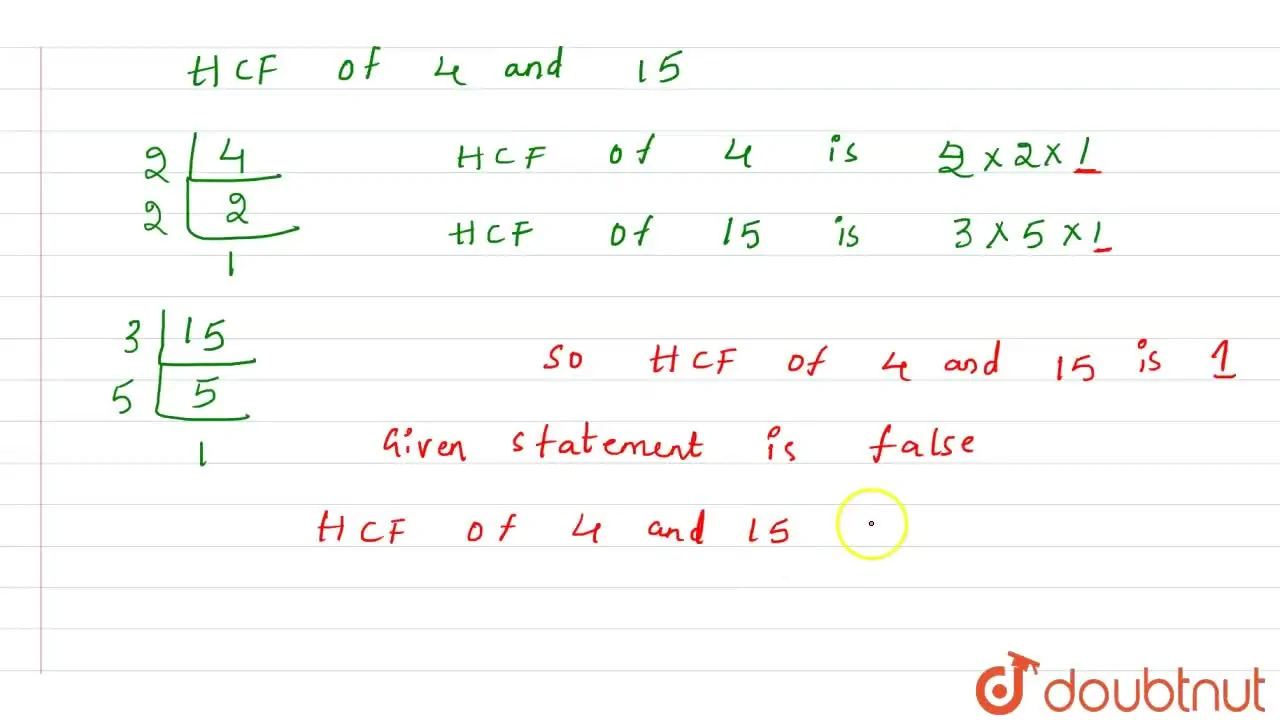 HCF of 4 and 15
2 4 HCF of 4 is 2 × 2 × 1
2 2 HCF of 15 is 3 × 5 × 1
1
3 15 So HCF of 4 and 15 is 1
5 5
1 Given statement is false
HCF of 4 and 15
doubtnut